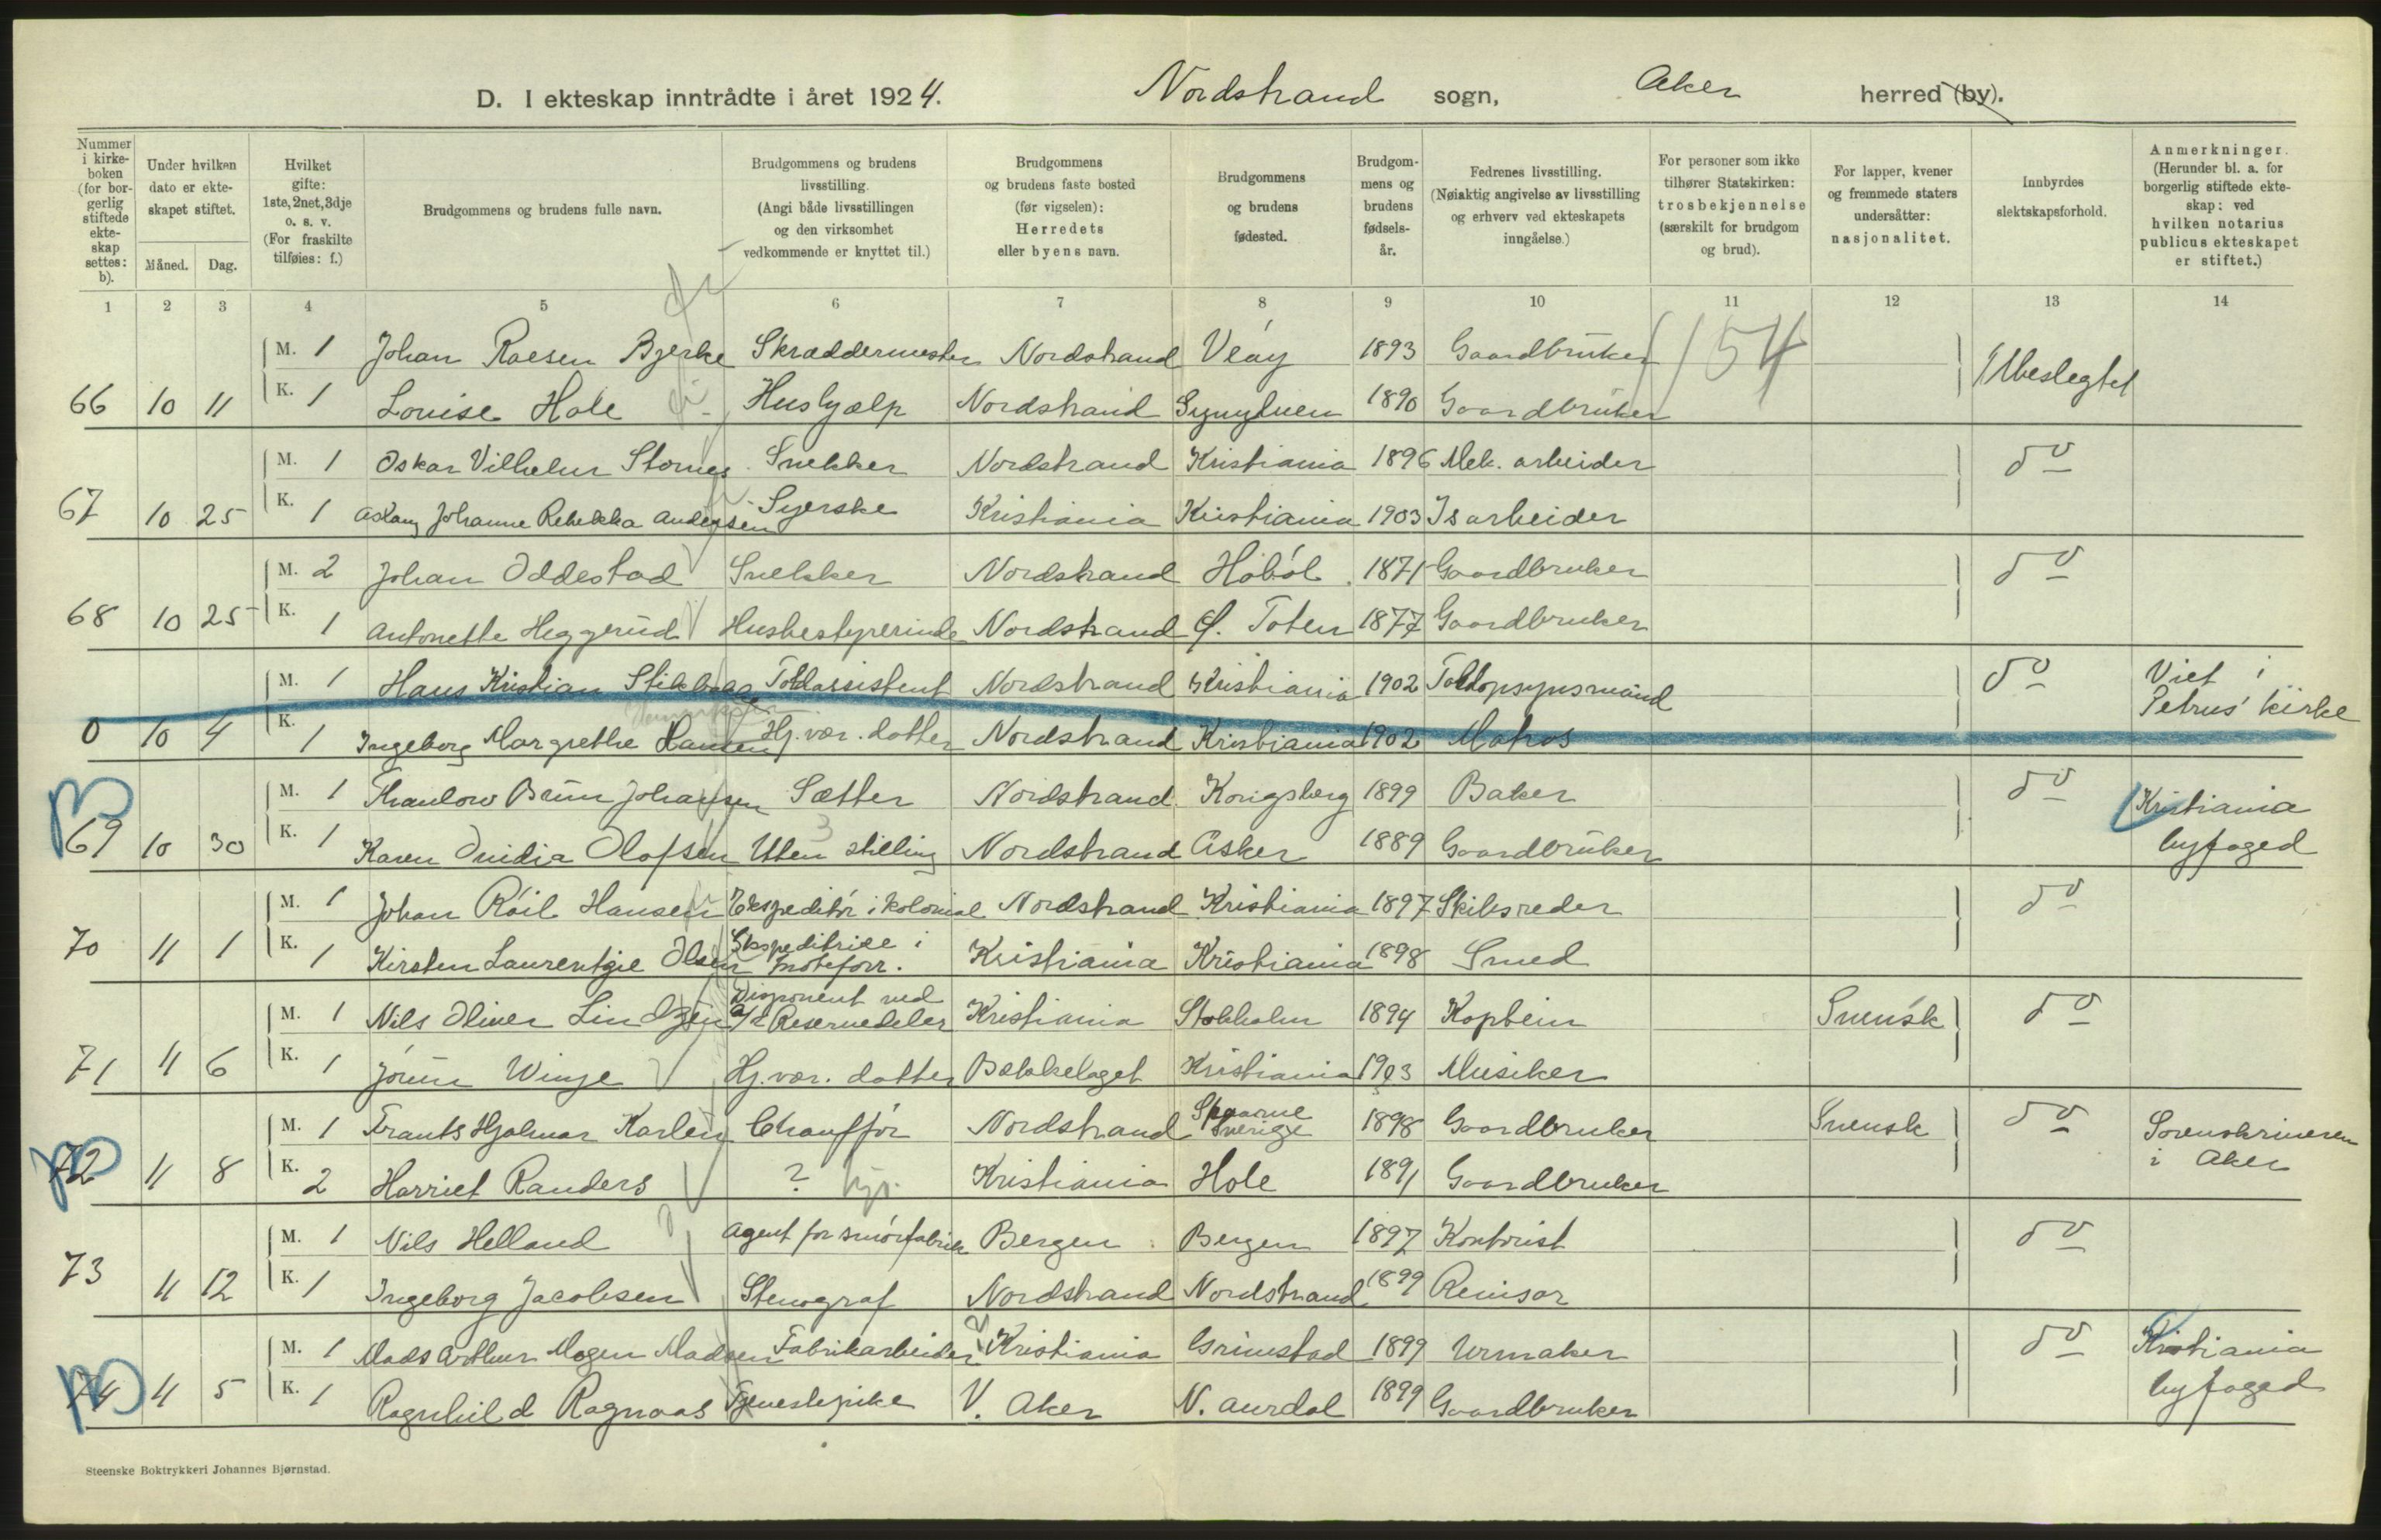 D. I ekteskap inntrådte i året 1924. Nordstrand sogn, Aker herred (by).
Nummer i kirke-boken (for bor-gerlig stiftede ekte-skap settes: b).
Under hvilken dato er ekte-skapet stiftet.
Måned. Dag.
Hvilket gifte: 1ste, 2net, 3dje o. s. v. (For fraskilte tilføies: f.)
Brudgommens og brudens fulle navn.
Brudgommens og brudens livsstilling. (Angi både livsstillingen og den virksomhet vedkommende er knyttet til.)
Brudgommens og brudens faste bosted (før vigselen): Herredets eller byens navn.
Brudgommens og brudens fødested.
Brudgom-mens og brudens fødsels-år.
Fedrenes livsstilling. (Nøiaktig angivelse av livsstilling og erhverv ved ekteskapets inngåelse.)
For personer som ikke tilhører Statskirken: trosbekjennelse (særskilt for brudgom og brud).
For lapper, kvener og fremmede staters undersåtter: nasjonalitet.
Innbyrdes slektskapsforhold.
Anmerkninger. (Herunder bl. a. for borgerlig stiftede ekte-skap: ved hvilken notarius publicus ekteskapet er stiftet.)
1 2 3 4 5 6 7 8 9 10 11 12 13 14
M. 1 Johan Roesen Bjerke Skræddermester Nordstrand Veøy 1893 Gaardbruker 154 Ubeslegtet
66 10 11 K. 1 Louise Hole Hushjælp Nordstrand 1890 Gaardbruker
M. 1 Oskar Vilhelm Stornes Snekker Nordstrand Kristiania 1896 Mek. arbeider do
67 10 25 K. 1 Aslaug Johanne Rebekka Andersen Syerske Kristiania Kristiania 1903 Isarbeider
M. 2 Johan Oddestad Snekker Nordstrand Hobøl 1871 Gaardbruker do
68 10 25 K. 1 Antonette Heggerud Husbestyrerinde Nordstrand Ø. Toten 1877 Gaardbruker
M. 1 Hans Kristian Toldassistent Nordstrand Kristiania 1902 Toldopsynsmand do Viet i Petrus' kirke
0 10 4 K. 1 Ingeborg Margrethe Hansen Hj. vær. datter Nordstrand Kristiania 1902 Matros
M. 1 Thaulow Brun Johansen Sætter Nordstrand Kongsberg 1899 Baker do Kristiania
69 10 30 K. 1 Karen Ovidia Olofsen Uten stilling 3 Nordstrand Asker 1889 Gaardbruker byfoged
M. 1 Johan Røil Hansen Ekspeditør i kolonial Nordstrand Kristiania 1897 Skibsreder do
70 11 1 K. 1 Kirsten Laurentzie Olsen Ekspeditrise i moteforr. Kristiania Kristiania 1898 Smed
M. 1 Nils Oliver Lindgren Disponent ved A/S Reservedeler Kristiania Stokholm 1894 Kaptein Svensk do
71 11 6 K. 1 Jorun Winge Hj. vær. datter Bækkelaget Kristiania 1903 Musiker
M. 1 Frants Hjalmar Karlén Chauffør Nordstrand Skaarne Sverige 1898 Gaardbruker Svensk do Sorenskriveren
72 11 8 K. 2 Harriet Randers ? Kristiania Hole 1891 Gaardbruker i Aker
M. 1 Nils Helland Agent for smørfabrik Bergen Bergen 1897 Kontorist do
73 11 12 K. 1 Ingeborg Jacobsen Stenograf Nordstrand Nordstrand 1899 Revisor
M. 1 Mads Arthur Mogen Madsen Fabrikarbeider Kristiania Grimstad 1899 Urmaker do Kristiania
74 11 5 K. 1 Ragnhild Ragnaas Tjenestepike V. Aker N. Aurdal 1899 Gaardbruker byfoged
Steenske Boktrykkeri Johannes Bjørnstad.